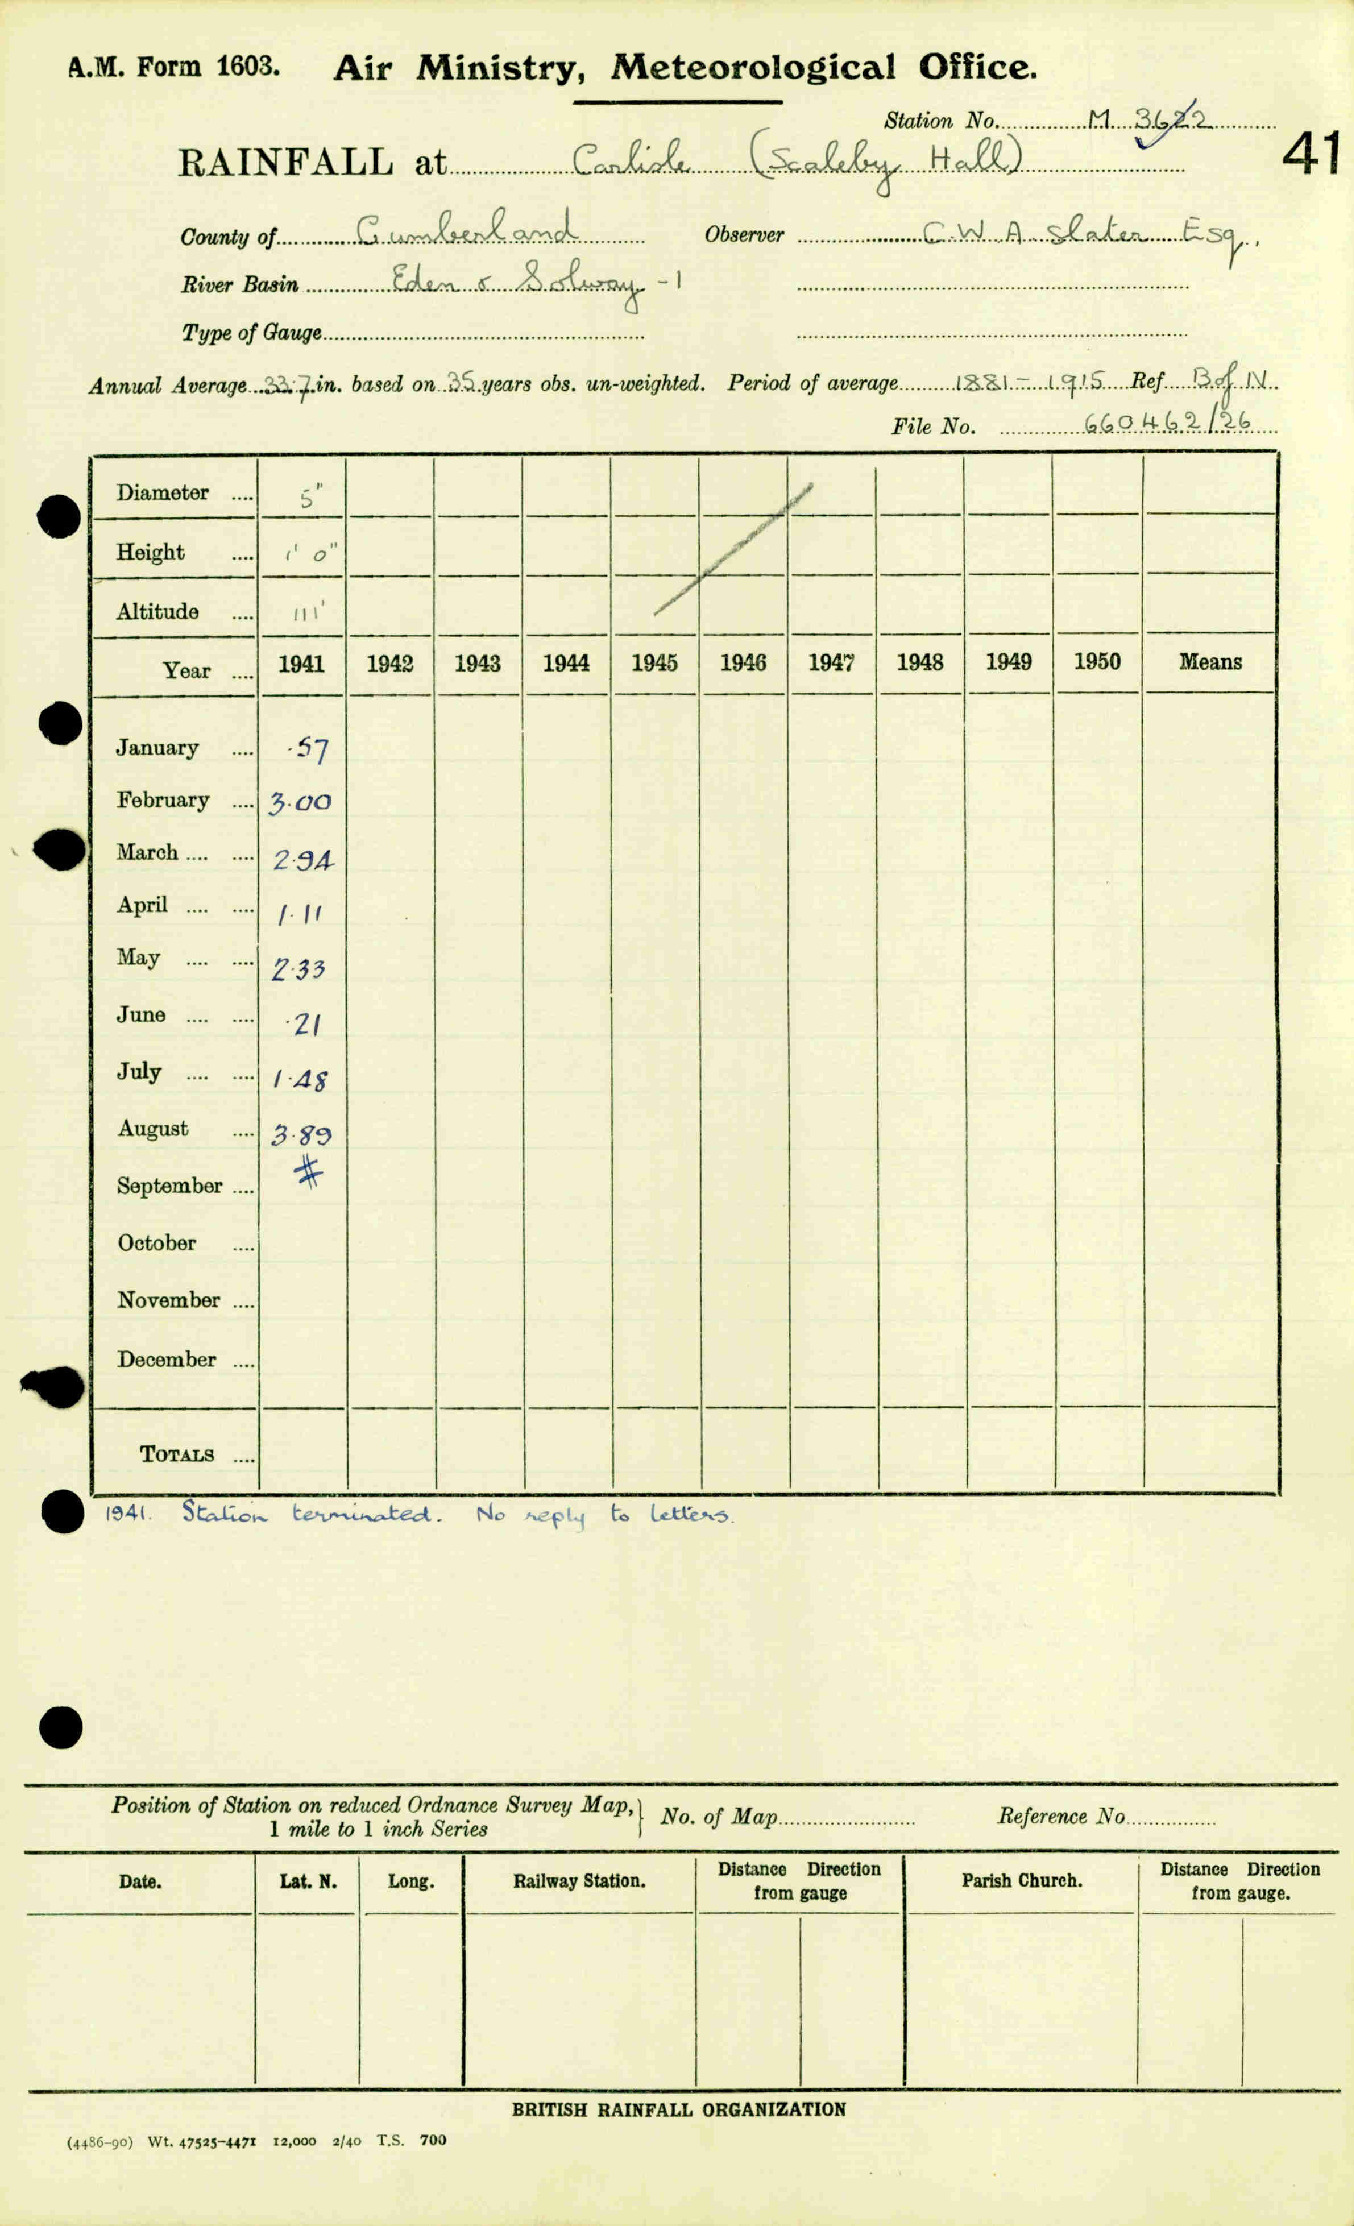 A.M. Form 1603. Air Ministry, Meteorological Office.
Station No. M 3622
41
RAINFALL at Carlisle (Scaleby Hall)
County of Cumberland Observer C.W.A. Slater Esq.,
River Basin Eden & Solway - 1
Type of Gauge
Annual Average 33.7 in. based on 35 years obs. un-weighted. Period of average 1881 - 1915 Ref. B of N.
File No. 660462/26
Diameter .... 5"
Height .... 1' 0"
Altitude .... 111'
Year .... 1941 1942 1943 1944 1945 1946 1947 1948 1949 1950 Means
January .... ·57
February .... 3·00
March .... .... 2·94
April .... .... 1·11
May .... .... 2·33
June .... .... ·21
July .... .... 1·48
August .... 3·89
September .... #
October ....
November ....
December ....
TOTALS ....
1941. Station terminated. No reply to letters.
Position of Station on reduced Ordnance Survey Map, } No. of Map Reference No.
1 mile to 1 inch Series
Date. Lat. N. Long. Railway Station. Distance from gauge Direction Parish Church. Distance Direction from gauge.
BRITISH RAINFALL ORGANIZATION
(4486-90) Wt. 47525-4471 12,000 2/40 T.S. 700